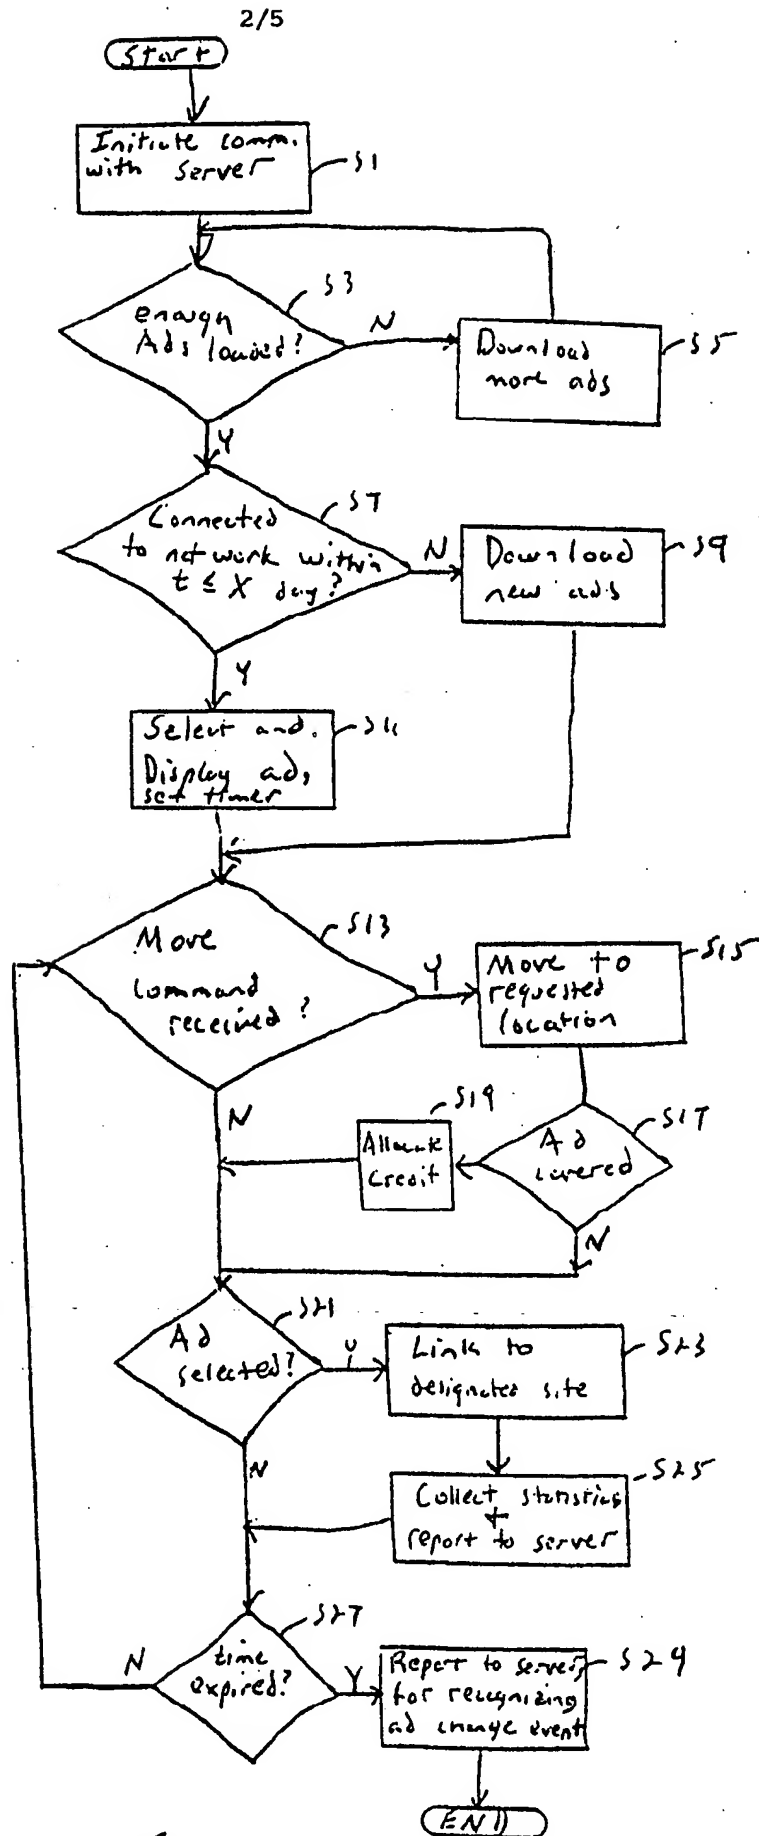 2/5
Start
Initiate comm.
with server
S1
S3
enough
Ads loaded?
N
Download
more ads
S5
Y
S7
Connected
to network within
t ≤ X day?
N
Download
new ads
S9
Y
Select and
Display ad,
set timer
S11
S13
Move
command
received?
Y
Move to
requested
location
S15
N
S19
Allocate
Credit
S17
Ad
covered
N
S21
Ad
selected?
Y
Link to
designated site
S23
N
Collect statistics
+
report to server
S25
S27
time
expired?
N
Y
Report to server
for recognizing
ad change event
S29
END